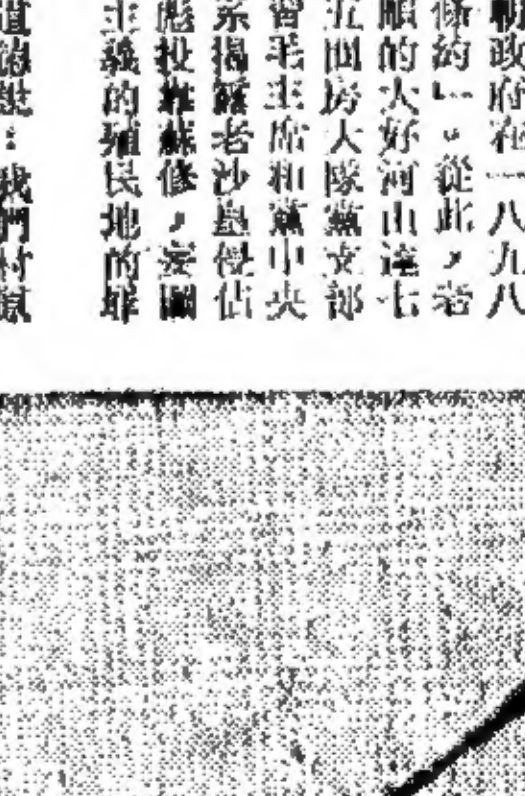 朝政府在一八九八
條約」。從此，老
順的大好河山達七
五間房大隊黨支部
習毛主席和黨中央
系揭露老沙皇侵佔
彪投靠蘇修，妄圖
主義的殖民地的罪
道錦想：我們村